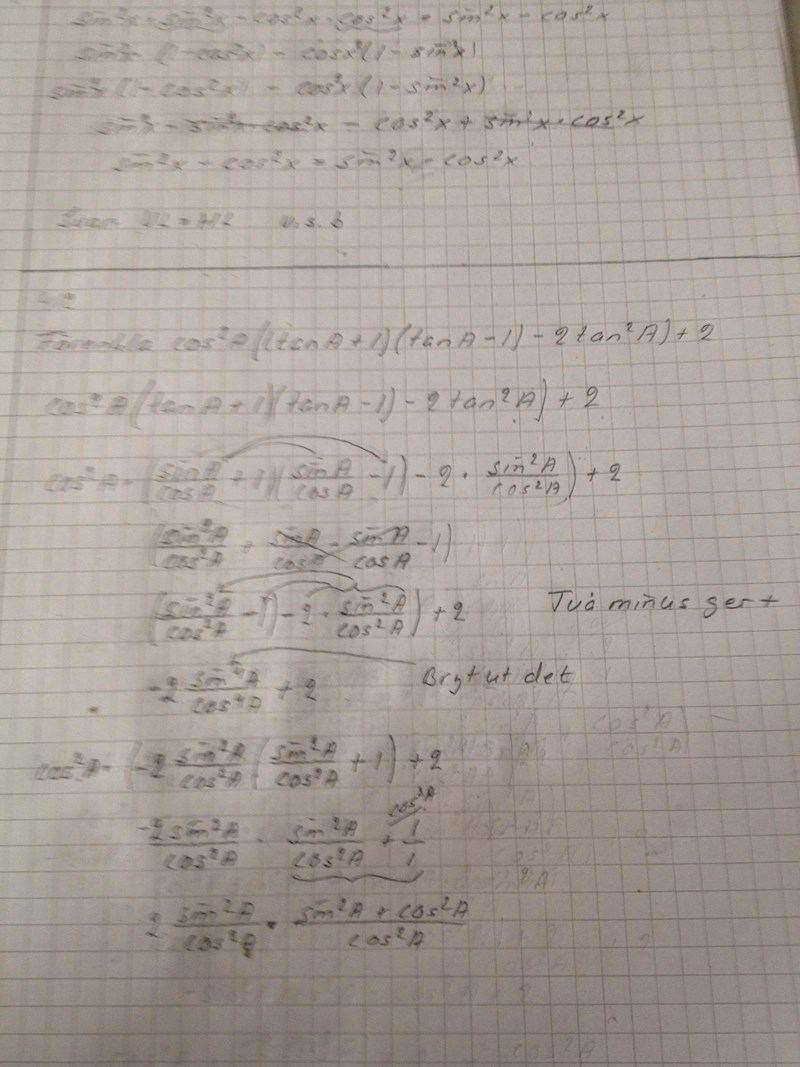 sin²x · sin²x - cos²x · cos²x = sin²x - cos²x
sin²x (1-cos²x) - cosx²(1-sin²x)
sin²x (1-cos²x) - cos²x (1-sin²x)
sin²x - sin²x·cos²x - cos²x + sin²x·cos²x
sin²x - cos²x = sin²x - cos²x
Svar: VL = HL v.s.b
Förenkla cos²A((tanA+1)(tanA-1)-2tan²A)+2
cos²A(tanA+1)(tanA-1)-2tan²A)+2
cos²A·(sinA/cosA + 1)(sinA/cosA - 1)-2·sin²A/cos²A)+2
(sin²A/cos²A + sinA/cosA - sinA/cosA - 1)
(sin²A/cos²A - 1)-2·sin²A/cos²A)+2 Två minus ger +
-2 sin⁴A/cos⁴A + 2 Bryt ut det
cos²A·(-2 sin²A/cos²A (sin²A/cos²A + 1)+2
-2sin²A/cos²A · sin²A/cos²A + 1/1 cos²A
2 sin²A/cos²A · sin²A + cos²A/cos²A